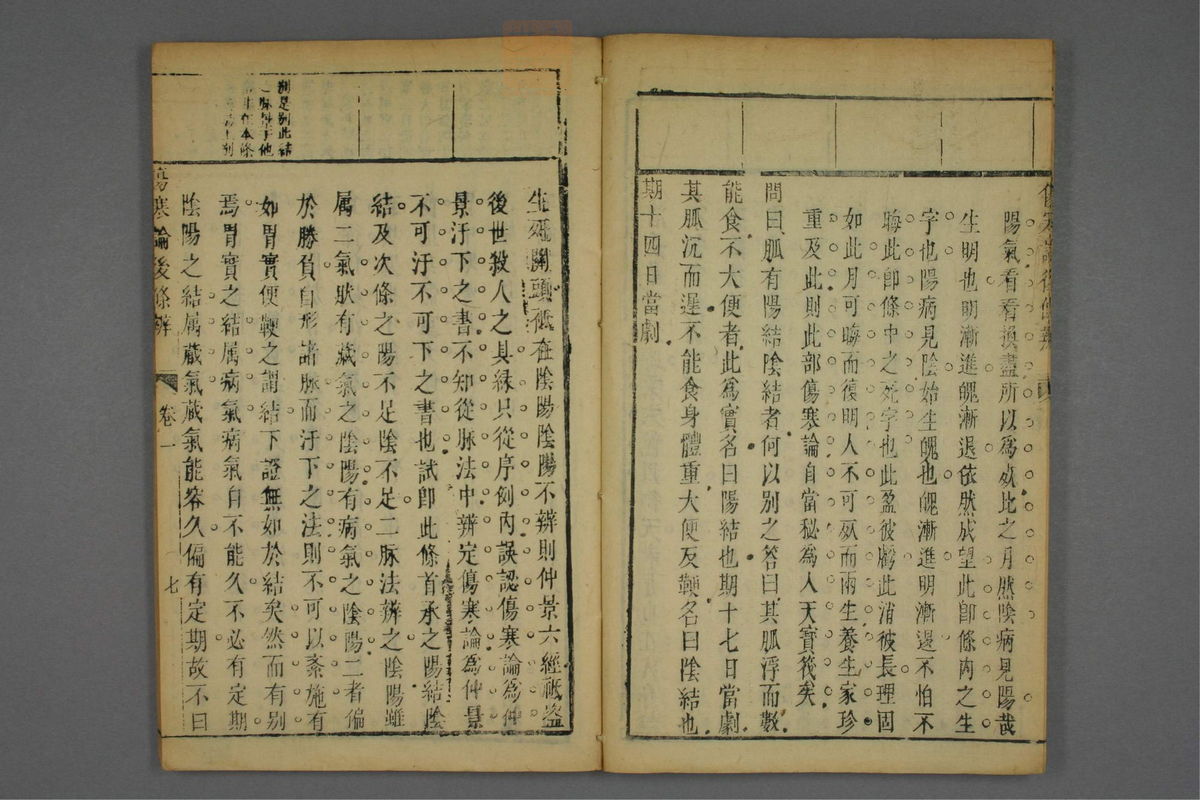 陽氣看看換盡所以為死比之月然陰病見陽哉
生明也明漸進魄漸退依然成望此卽條內之生
字也陽病見陰始生魄也魄漸進明漸退不怕不
晦此卽條中之死字也此盈彼虧此消彼長理固
如此月可晦而復明人不可死而兩生養生家珍
重及此則此部傷寒論自當秘為人天寶筏矣
問曰脉有陽結陰結者何以別之答曰其脉浮而數
能食不大便者此為實名曰陽結也期十七日當劇
其脉沉而遲不能食身體重大便反鞕名曰陰結也
期十四日當劇
別是別此結
脉
本條
生死關頭祗在陰陽陰陽不辨則仲景六經祗盜
後世殺人之具緣只從序例內誤認傷寒論為仲
景汗下之書不知從脉法中辨定傷寒論為仲景
不可汗不可下之書也試卽此條首承之陽結陰
結及次條之陽不足陰不足二脉法辨之陰陽雖
属二氣狀有藏氣之陰陽有病氣之陰陽二者偏
於勝負自形諸脉而汗下之法則不可以紊施有
如胃實便鞕之謂結下證無如於結矣然而有別
焉胃實之結属病氣病氣自不能久不必有定期
陰陽之結属藏氣藏氣能容久偏有定期故不曰
傷寒論後條辨 卷一 七